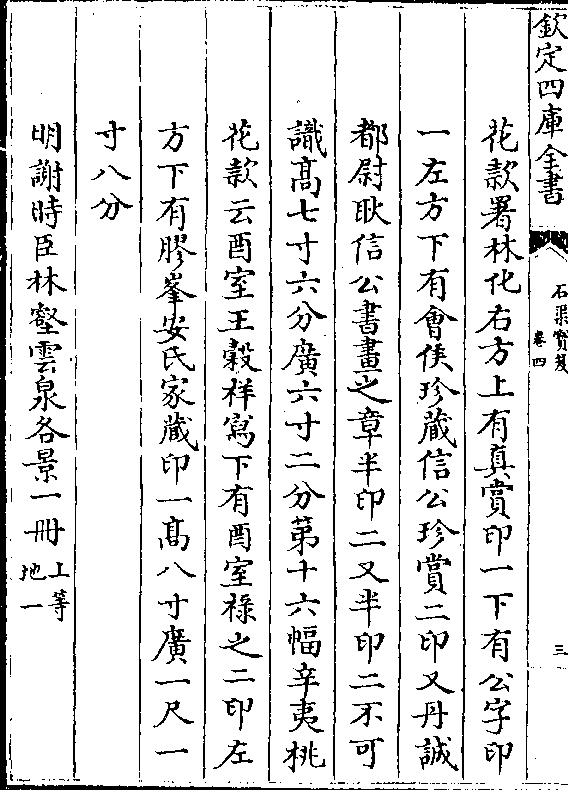 欽定四庫全書
石渠寳笈
卷四
三
花款署林化右方上有真賞印一下有公字印
一左方下有會侯珍蔵信公珍賞二印又丹誠
都尉耿信公書畫之章半印二又半印二不可
識髙七寸六分廣六寸二分第十六幅辛夷桃
花款云酉室王榖祥寫下有酉室禄之二印左
方下有膠峯安氏家蔵印一髙八寸廣一尺一
寸八分
明謝時臣林壑雲泉各景一冊上等
地一